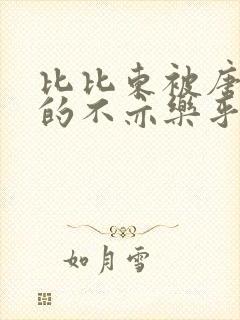 比比东被唐
的不亦乐乎
如月雪